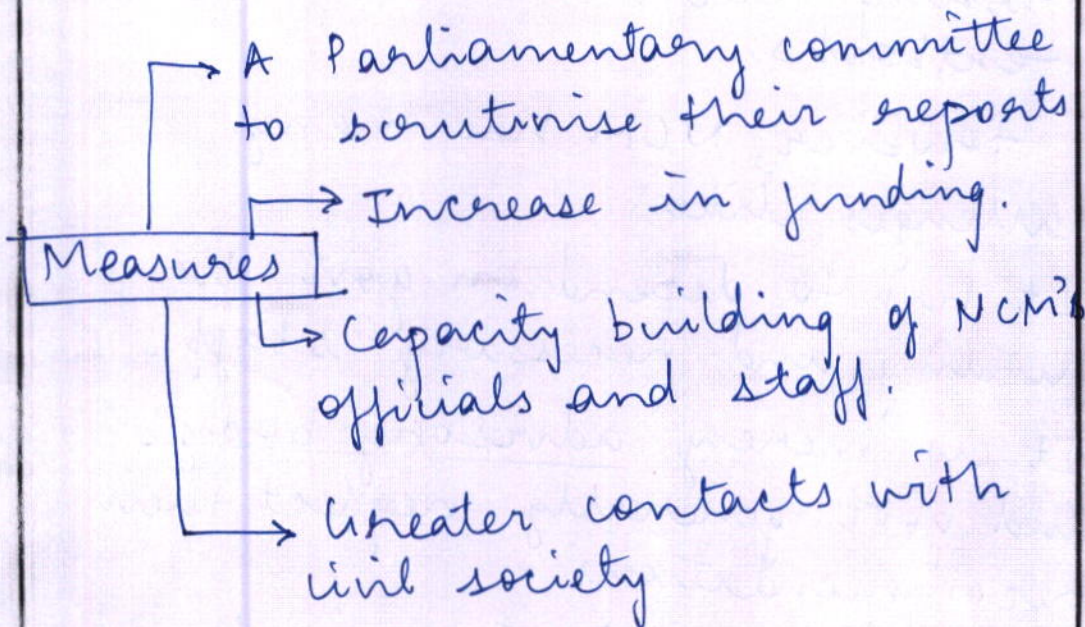 A Parliamentary committee
to scrutinise their reports
Increase in funding.
Measures
Capacity building of NCM's
officials and staff.
Greater contacts with
civil society